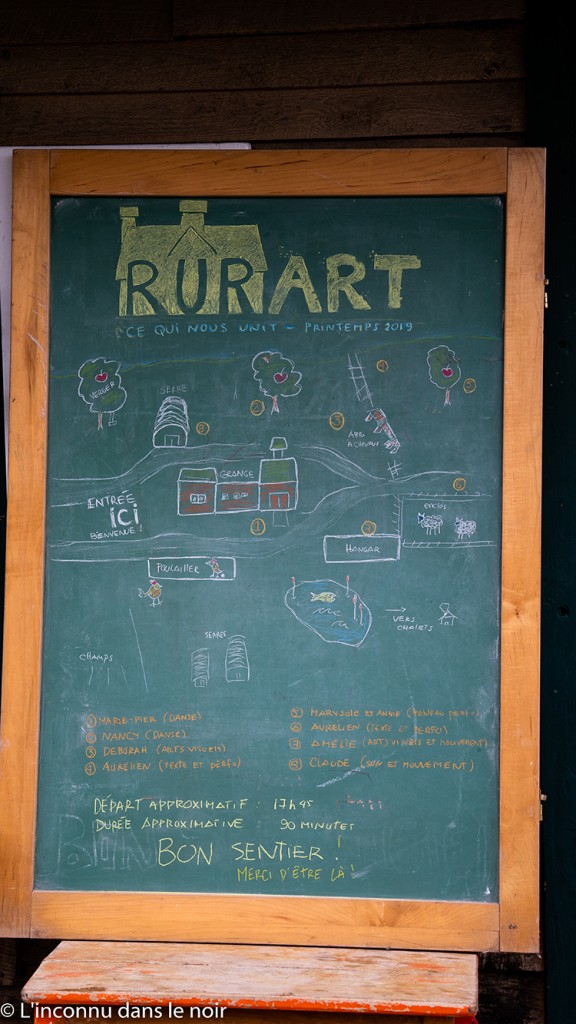 RURART
CE QUI NOUS UNIT - PRINTEMPS 2019
VERGER
SERRE
②
③
④
⑤
⑧
GRANGE
ENTRÉE
ici
BIENVENUE!
①
⑥
ENCLOS
HANGAR
POULAILLER
→ VERS
CHALETS
SERRES
CHAMPS
① MARIE-PIER (DANSE)
② NANCY (DANSE)
③ DEBORAH (ARTS VISUELS)
④ AURÉLIEN (TEXTE ET PERFO)
⑤ MARYSOLE ET ANGIE
⑥ AURÉLIEN (TEXTE ET PERFO)
⑦ AMÉLIE (ARTS VISUELS ET MOUVEMENT)
⑧ CLAUDE (SON ET MOUVEMENT)
DÉPART APPROXIMATIF : 17h45
DURÉE APPROXIMATIVE 90 MINUTES
BON SENTIER!
MERCI D'ÊTRE LÀ!
© L'inconnu dans le noir